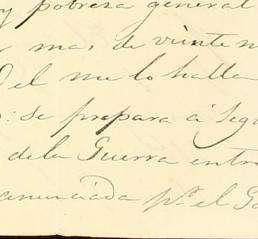 y pobreza general
mas, de viente m
Del me lo halla
: se prepara á seg
de la Guerra entr
anunciada pr. el Go